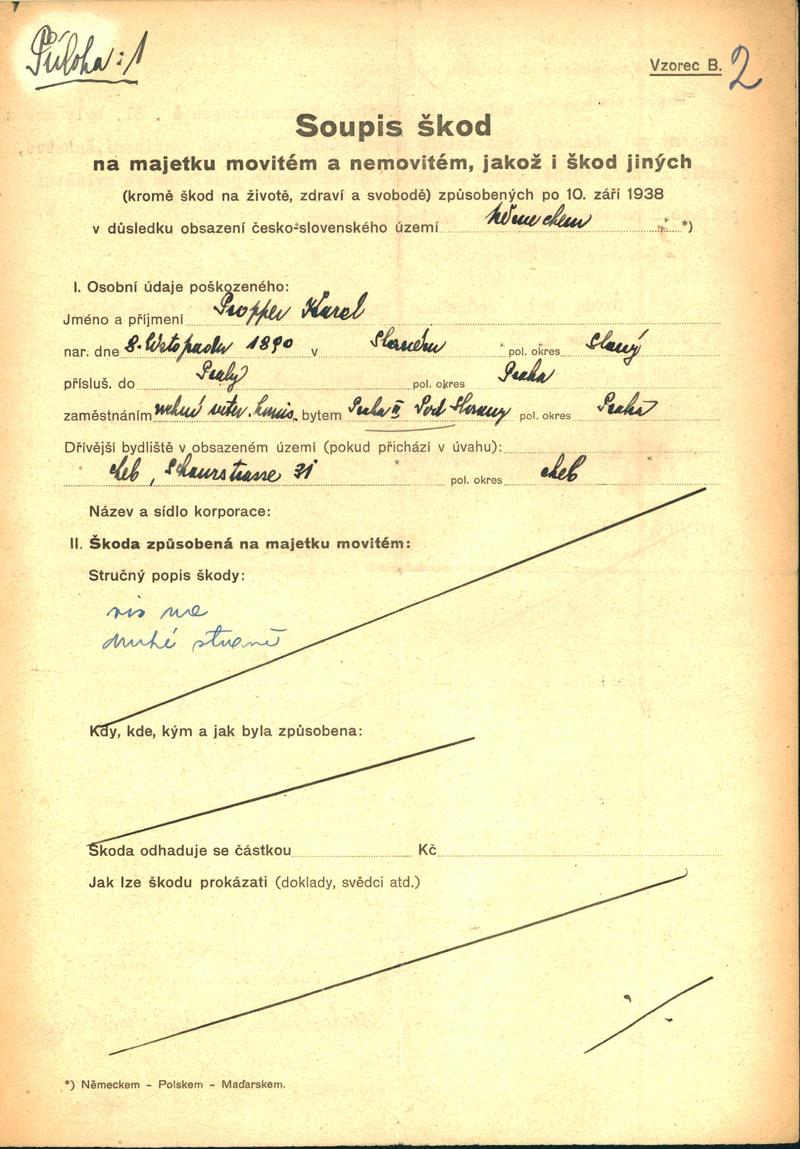 Příloha: 1
Vzorec B. 2
Soupis škod
na majetku movitém a nemovitém, jakož i škod jiných
(kromě škod na životě, zdraví a svobodě) způsobených po 10. září 1938
v důsledku obsazení česko-slovenského území Německem *)
I. Osobní údaje poškozeného:
Jméno a příjmení Propper Karel
nar. dne 8. listopadu 1890 v Slaném pol. okres Slaný
přísluš. do Prahy pol. okres Praha
zaměstnáním bytem Praha II Pod Slovany pol. okres Praha
Dřívější bydliště v obsazeném území (pokud přichází v úvahu):
Cheb, 31 pol. okres Cheb
Název a sídlo korporace:
II. Škoda způsobená na majetku movitém:
Stručný popis škody:
vis na
druhé straně
Kdy, kde, kým a jak byla způsobena:
Škoda odhaduje se částkou Kč
Jak lze škodu prokázati (doklady, svědci atd.)
*) Německem - Polskem - Maďarskem.